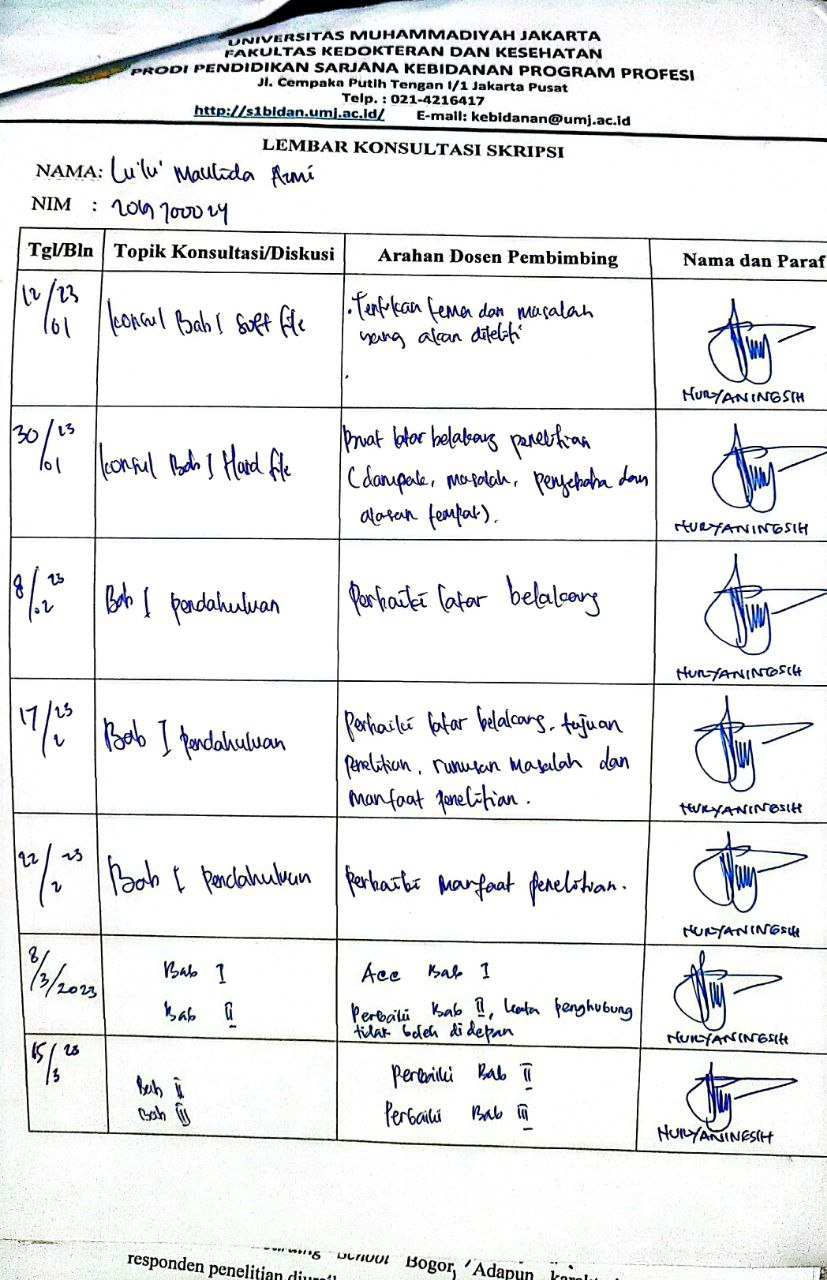 UNIVERSITAS MUHAMMADIYAH JAKARTA
FAKULTAS KEDOKTERAN DAN KESEHATAN
PRODI PENDIDIKAN SARJANA KEBIDANAN PROGRAM PROFESI
Jl. Cempaka Putih Tengah I/1 Jakarta Pusat
Telp. : 021-4216417
http://s1bidan.umj.ac.id/ E-mail: kebidanan@umj.ac.id
LEMBAR KONSULTASI SKRIPSI
NAMA: Lu'lu' Maulida Azmi
NIM :
Tgl/Bln Topik Konsultasi/Diskusi Arahan Dosen Pembimbing Nama dan Paraf
12/01 23 Konsul Bab I Soft file
. Tentukan tema dan masalah
yang akan diteliti
NURYANINGSIH
30/01 23 Konsul Bab I Hard file
Buat latar belakang penelitian
(dampak, masalah, penyebab dan
alasan tempat).
NURYANINGSIH
8/02 23 Bab I pendahuluan Perbaiki latar belakang
NURYANINGSIH
17/2 23 Bab I pendahuluan
Perbaiki latar belakang, tujuan
penelitian, rumusan masalah dan
manfaat penelitian.
NURYANINGSIH
22/2 23 Bab I pendahuluan Perbaiki manfaat penelitian.
NURYANINGSIH
8/3/2023 Bab I Acc Bab I
Bab II Perbaiki Bab II, kata penghubung
tidak boleh di depan
NURYANINGSIH
15/3 23 Bab II Perbaiki Bab II
Bab III Perbaiki Bab III
NURYANINGSIH
School Bogor, Adapun
responden penelitian